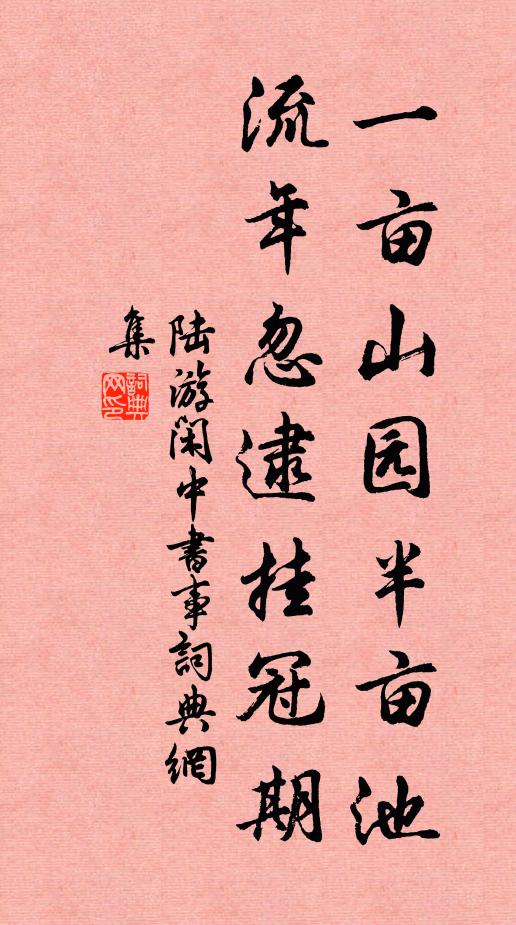 一亩山园半亩池
流年忽逮挂冠期
陆游闲中书事词典網
集
詞典
网印